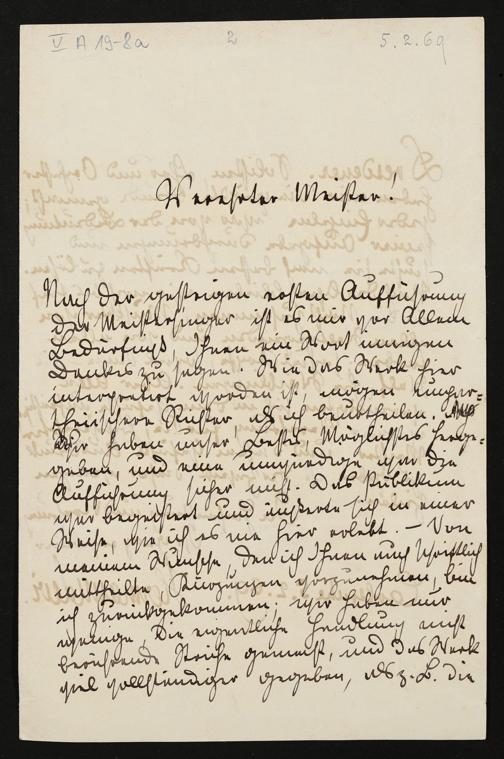 V A 19-8a 2 5.2.69
Verehrter Meister!
Nach der gestrigen ersten Aufführung
der Meistersinger ist es mir vor Allem
Bedürfniß, Ihnen ein Wort innigen
Dankes zu sagen. Wie das Werk hier
interpretirt worden ist, mögen unpar-
theiischere Richter, als ich beurtheilen.
Wir haben unser Bestes, Möglichstes herge-
geben, und eine unwürdige war die
Aufführung sicher nicht. Das Publikum
war begeistert und äußerte sich in einer
Weise, wie ich es nie hier erlebt. – Von
meinem Wunsche, den ich Ihnen auch schriftlich
mittheilte, Kürzungen vorzunehmen, bin
ich zurückgekommen; wir haben nur
wenige, die eigentliche Handlung nicht
berührende Striche gemacht, und das Werk
viel vollständiger gegeben, als z. B. die